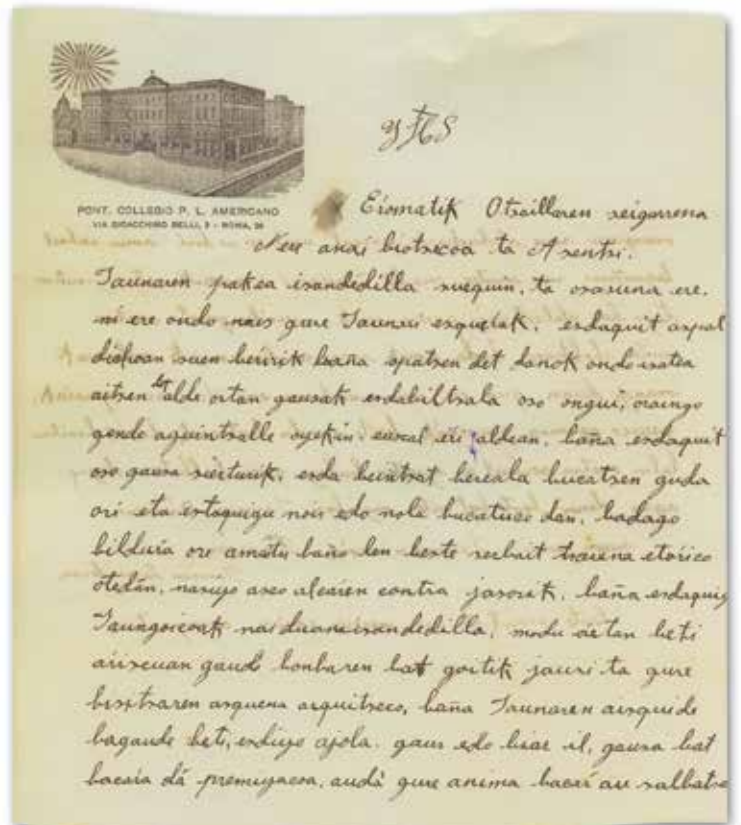 PONT. COLLEGIO P. L. AMERICANO
VIA GIOACCHINO BELLI, 3 - ROMA, 26
JHS
Eromatik Otsaillaren seigarrena
Nere anai biotzecoa ta Asentsi.
Jaunaren pakea izandedilla zuequin, ta osasuna ere.
ni ere ondo nais gure Jaunai esquerrak, esdaquit aspal
dichoan zuen berririk baña opatzen det danok ondo izatea
aitzen det alde ortan gauzak esdabiltzala oso ongui, oraingo
gende aguintzalle oyekin. euzcal eri aldean, baña esdaquit
oso gauza zierturik, esda beintzat bereala bucatzen guda
ori eta estaquigu nois edo nola bucatuco dan, badago
bildurra ore amatu baño len beste zerbait
otedan, naziyo asco alcarren contra jarririk, baña esdaquigu
Jaungoicoak nai duana izandedilla, modu
gaud bonbaren bat goitik jauzi ta gure
bizitzaren asquena arquitzeco, baña Jaunaren aisquide
bagaude beti, esdiyo ajola. gaur edo biar il, gauza bat
bacarra dá premiyazcoa, audá gure anima bacar au salbatzea